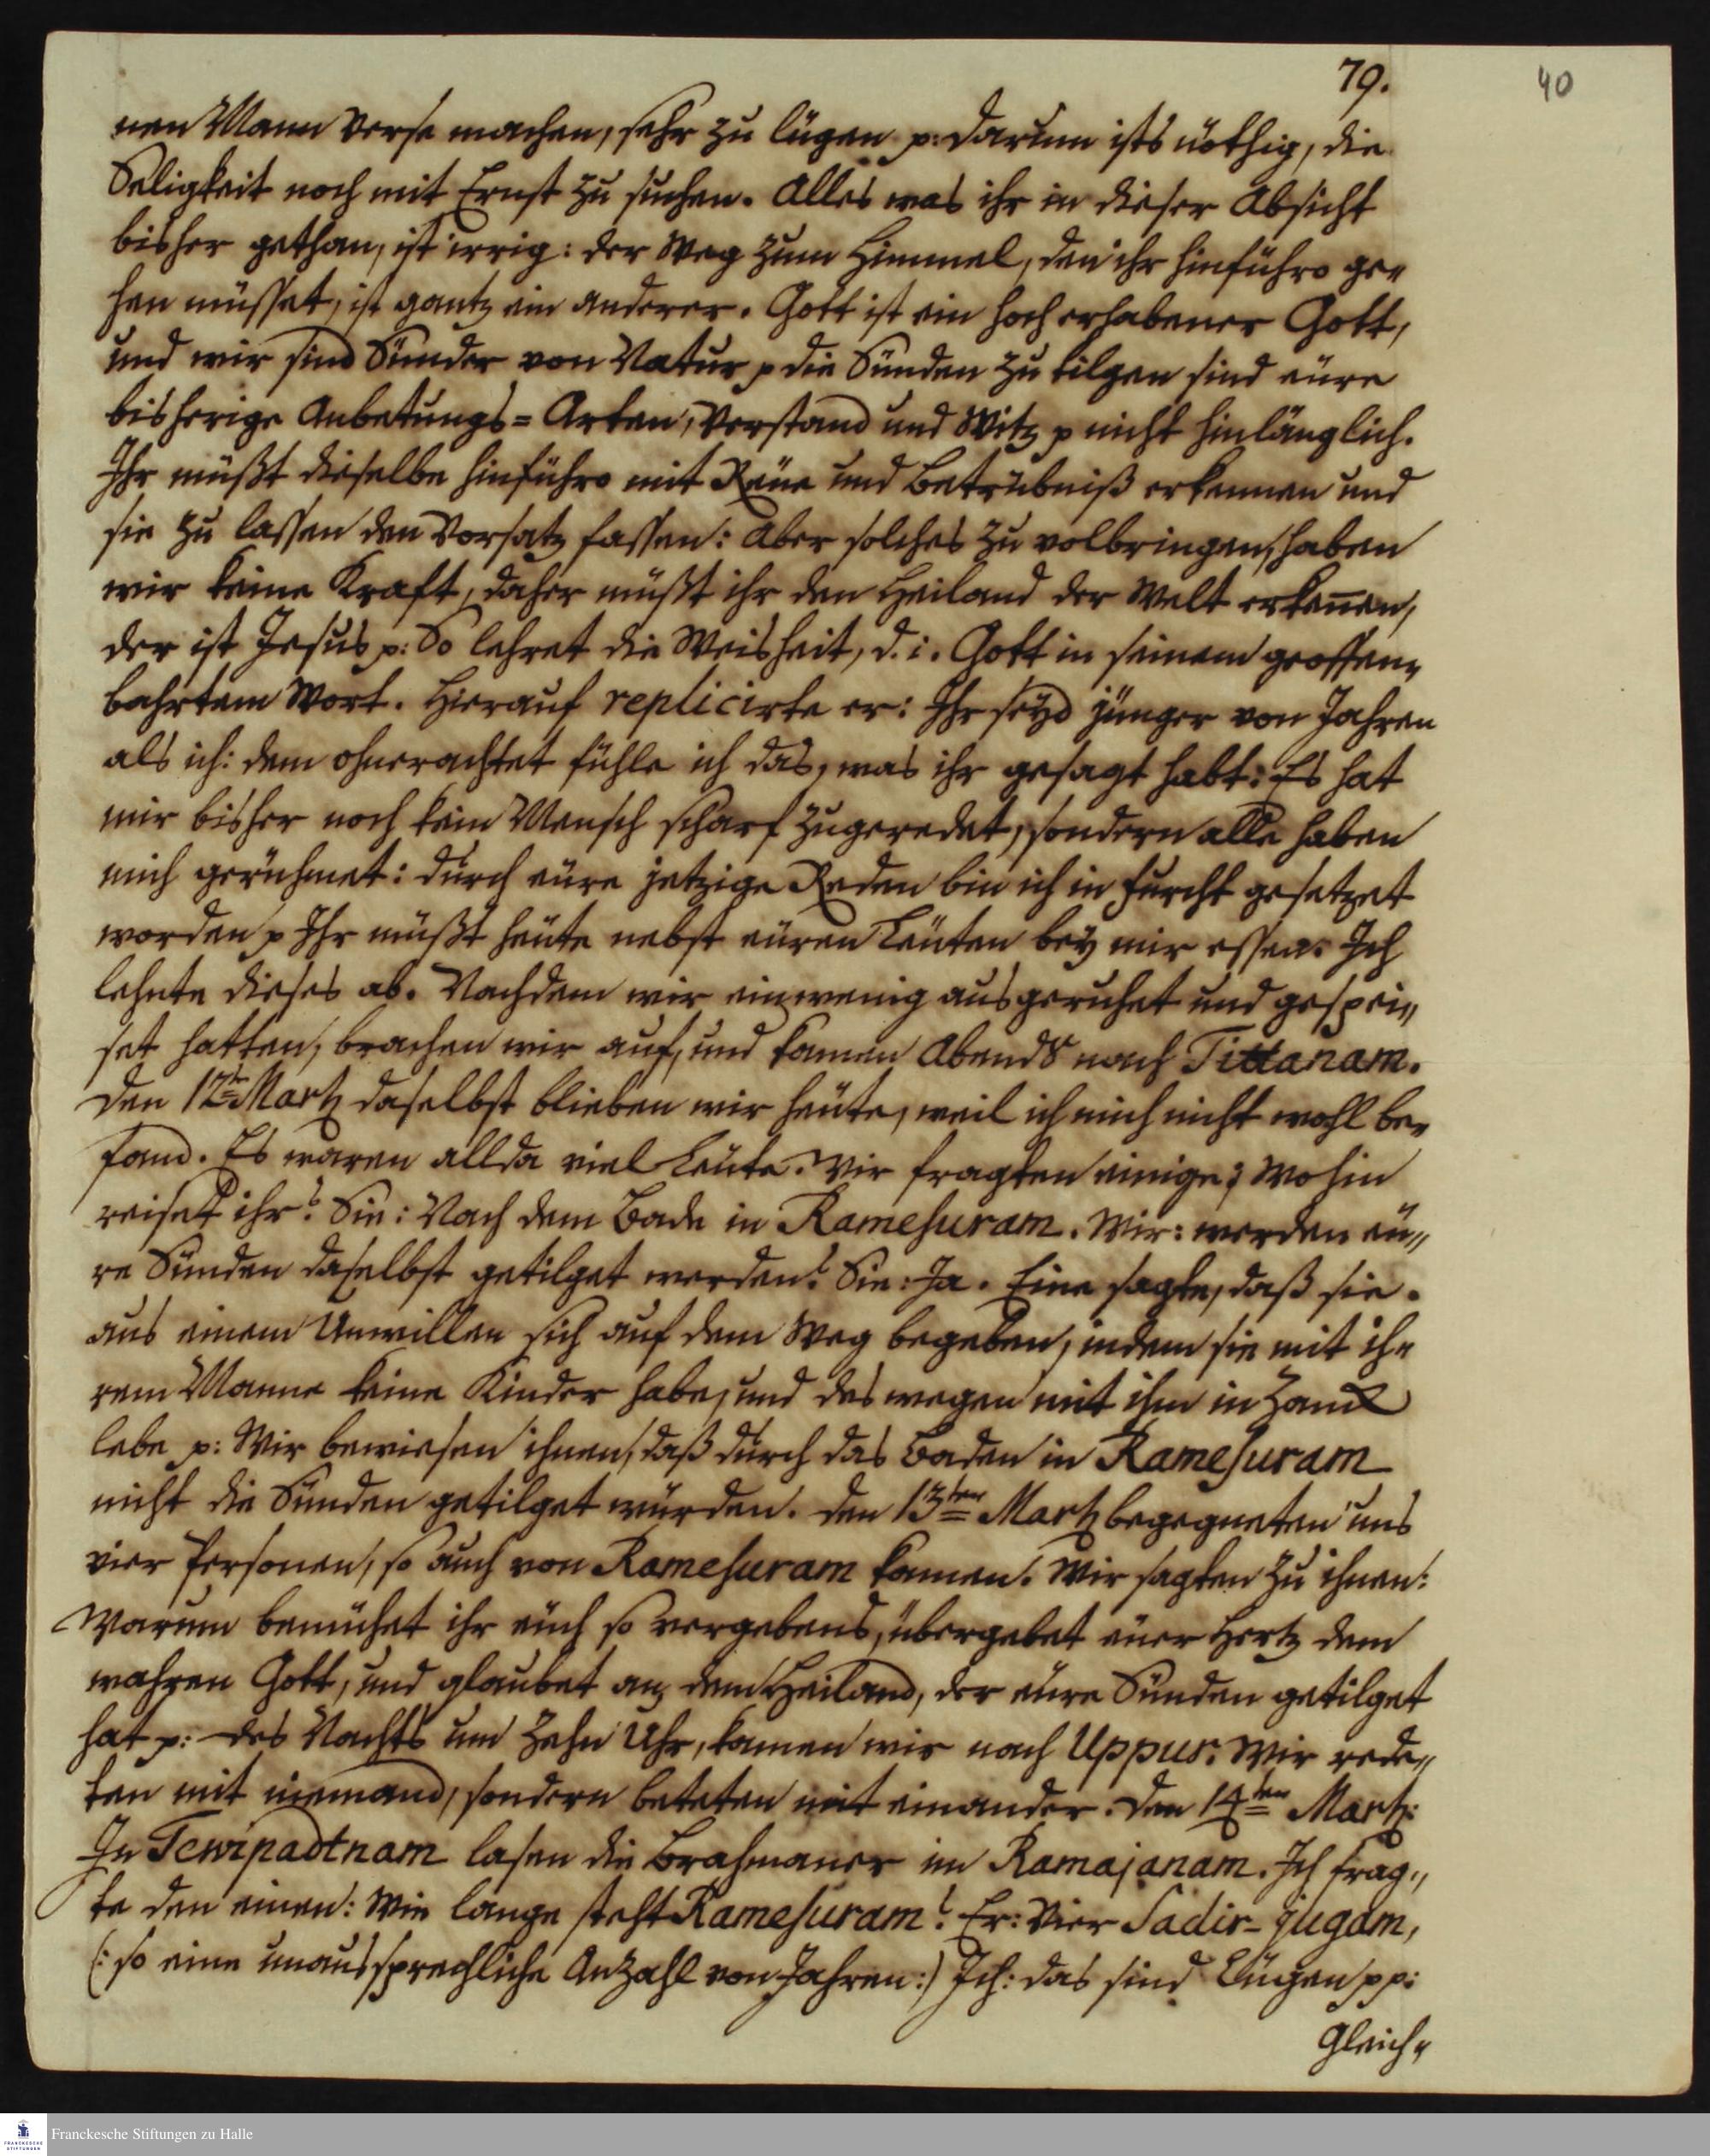 79.
40
nen Mann Verse machen, sehr zu lügen p: darum ists nöthig, die
Seligkeit noch mit Ernst zu suchen. Alles was ihr in dieser Absicht
bisher gethan, ist irrig: der Weg zum Himmel, den ihr hinführo ge„
hen müsset, ist gantz ein anderer. Gott ist ein hoch erhabener Gott,
und wir sind Sünder von Natur p die Sünden zu tilgen sind eüre
bisherige Anbetungs=Arten, Verstand und Witz p nicht hinlänglich.
Ihr müßt dieselbe hinführo mit Reüe und Betrübniß erkennen und
sie zu lassen den Vorsatz fassen: Aber solches zu volbringen, haben
wir keine Kraft, daher müßt ihr den Heiland der Welt erkennen,
der ist Jesus p: So lehret die Weisheit, d. i. Gott in seinem geoffen„
bahrtem Wort. Hierauf replicirte er: Ihr seyd jünger von Jahren
als ich: dem ohnerachtet fühle ich das, was ihr gesagt habt: Es hat
mir bisher noch kein Mensch scharf zugeredet, sondern alle haben
mich gerühmet: durch eüre jetzige Reden bin ich in Furcht gesetzet
worden p Ihr müßt heüte nebst eüren Leüten bey mir essen. Ich
lehnte dieses ab. Nachdem wir ein wenig ausgeruhet und gespei„
set hatten, brachen wir auf, und kamen Abends nach Tittanam.
Den 12ten Martz daselbst blieben wir heüte, weil ich mich nicht wohl be„
fand. Es waren allda viel Leüte. Wir fragten einige; Wohin
reiset ihr? Sie: Nach dem Bade in Ramesuram. Wir: werden eü„
re Sünden daselbst getilget werden? Sie: Ja. Eine sagte, daß sie
aus einem Unwillen sich auf dem Weg begeben, indem sie mit ih„
rem Manne keine Kinder habe, und des wegen mit ihm in Zanck
lebe p: Wir bewiesen ihnen, daß durch das Baden in Ramesuram
nicht die Sünden getilget würden. Den 13ten Martz begegneten uns
vier Personen, so auch von Ramesuram kamen. Wir sagten zu ihnen:
Warum bemühet ihr eüch so vergebens, übergebet eüer Hertz dem
wahren Gott, und glaubet an den Heiland, der eüre Sünden getilget
hat p: des Nachts um Zehn Uhr, kamen wir nach Uppur. Wir rede„
ten mit niemand, sondern beteten mit einander. Den 14ten Martz:
In Tewipadtnam lasen die Brahmaner im Ramajanam. Ich frag„
te den einen: Wie lange steht Ramesuram? Er: Vier Sadir-jugam,
(: so eine unaussprechliche Anzahl von Jahren:) Ich: das sind Lügen pp:
Gleich„
Franckesche Stiftungen zu Halle